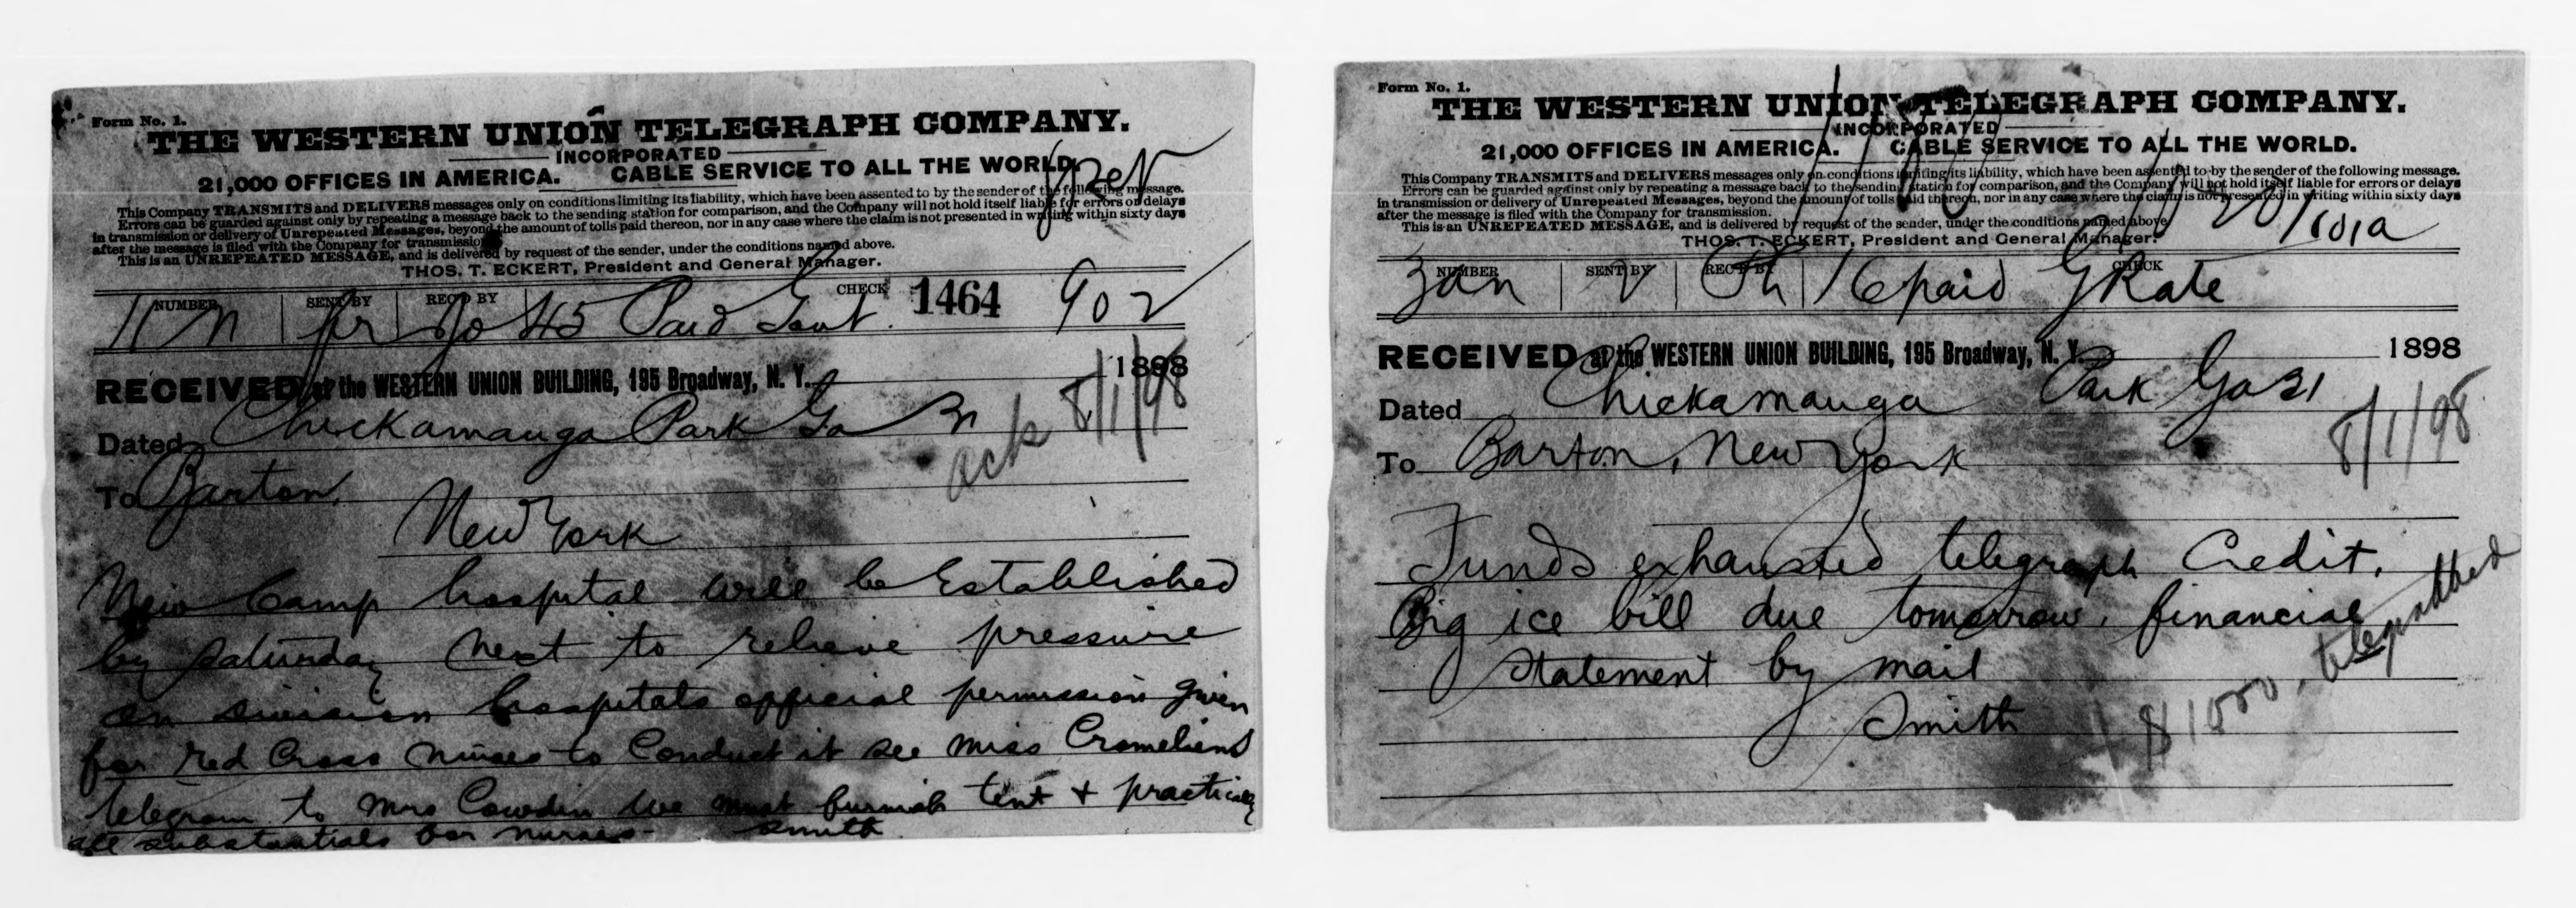 Form No. 1.
THE WESTERN UNION TELEGRAPH COMPANY.
INCORPORATED
21,000 OFFICES IN AMERICA. CABLE SERVICE TO ALL THE WORLD.
This Company TRANSMITS and DELIVERS messages only on conditions limiting its liability, which have been assented to by the sender of the following message.
Errors can be guarded against only by repeating a message back to the sending station for comparison, and the Company will not hold itself liable for errors or delays
in transmission or delivery of Unrepeated Messages, beyond the amount of tolls paid thereon, nor in any case where the claim is not presented in writing within sixty days
after the message is filed with the Company for transmission
This is an UNREPEATED MESSAGE, and is delivered by request of the sender, under the conditions named above.
THOS. T. ECKERT, President and General Manager.
NUMBER SENT BY REC'D BY CHECK
45 Paid Govt. 1464 902
RECEIVED at the WESTERN UNION BUILDING, 195 Broadway, N. Y. 1898
Dated Chickamauga Park Ga 31
ack 8/1/98
To Barton
New York
New Camp hospital will be Established
by saturday next to relieve pressure
on division hospitals official permission given
for Red Cross nurses to Conduct it see miss Cromeliens
telegram to Mrs Cowdin we must furnish tent & practically
all substantials for nurses- Smith
Form No. 1.
THE WESTERN UNION TELEGRAPH COMPANY.
INCORPORATED
21,000 OFFICES IN AMERICA. CABLE SERVICE TO ALL THE WORLD.
This Company TRANSMITS and DELIVERS messages only on conditions limiting its liability, which have been assented to by the sender of the following message.
Errors can be guarded against only by repeating a message back to the sending station for comparison, and the Company will not hold itself liable for errors or delays
in transmission or delivery of Unrepeated Messages, beyond the amount of tolls paid thereon, nor in any case where the claim is not presented in writing within sixty days
after the message is filed with the Company for transmission.
This is an UNREPEATED MESSAGE, and is delivered by request of the sender, under the conditions named above.
THOS. T. ECKERT, President and General Manager.
NUMBER SENT BY REC'D BY CHECK
16 paid G Rate
RECEIVED at the WESTERN UNION BUILDING, 195 Broadway, N. Y. 1898
Dated Chickamauga Park Ga 31
8/1/98
To Barton, New York
Funds exhausted telegraph Credit.
Big ice bill due tomorrow. financial
Statement by mail
Smith
$1000, telegraphed